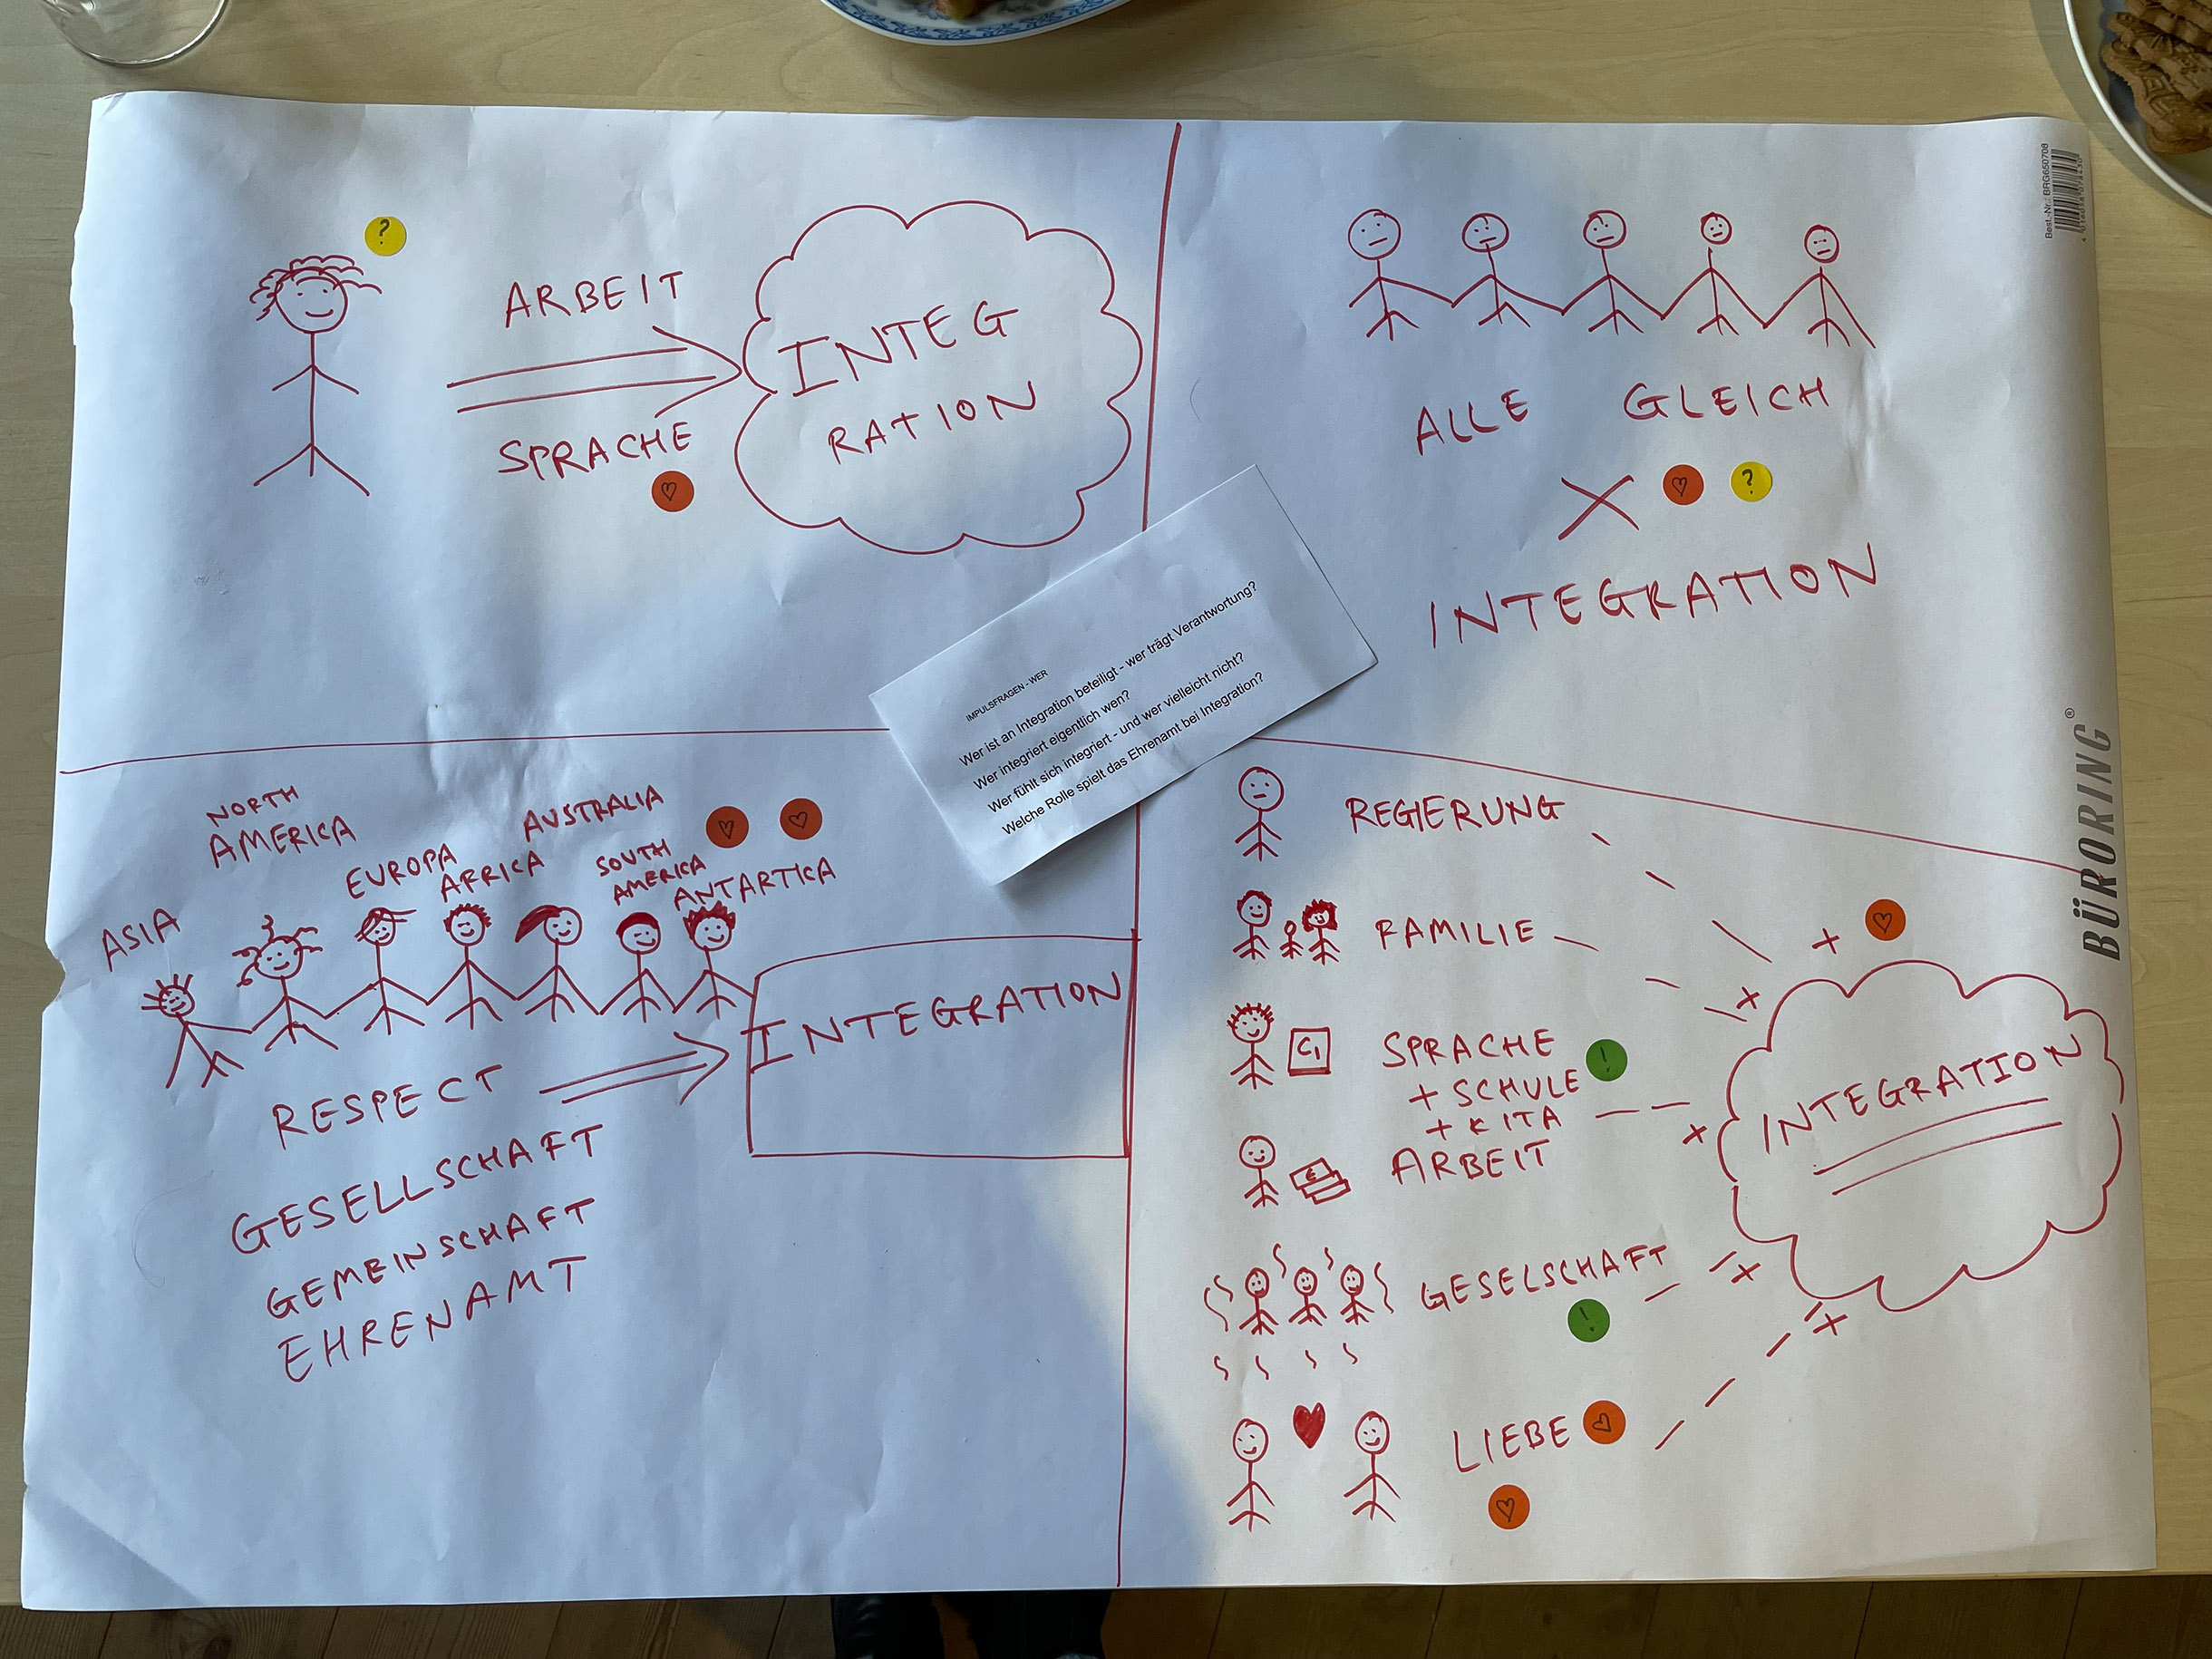 ?
ARBEIT
SPRACHE
INTEG
RATION
ALLE GLEICH
X
?
INTEGRATION
Best.-Nr.: BRG650708
BÜRORING®
IMPULSFRAGEN - WER
Wer ist an Integration beteiligt - wer trägt Verantwortung?
Wer integriert eigentlich wen?
Wer fühlt sich integriert - und wer vielleicht nicht?
Welche Rolle spielt das Ehrenamt bei Integration?
ASIA
NORTH
AMERICA
EUROPA
AFRICA
AUSTRALIA
SOUTH
AMERICA
ANTARTICA
RESPECT
GESELLSCHAFT
GEMEINSCHAFT
EHRENAMT
INTEGRATION
REGIERUNG
FAMILIE
C1
SPRACHE
+ SCHULE
+ KITA
!
€
ARBEIT
GESELSCHAFT
!
LIEBE
INTEGRATION